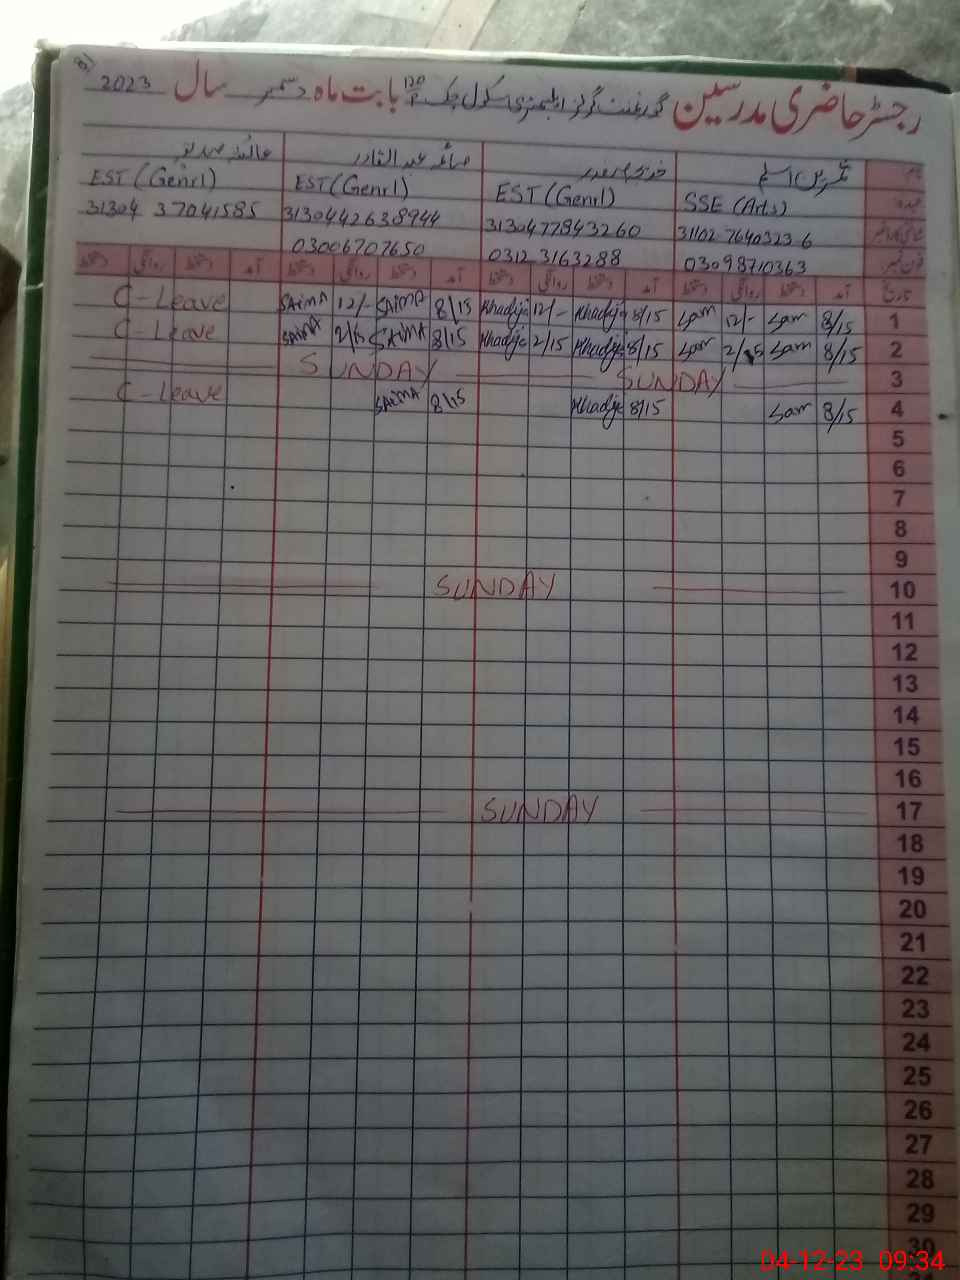 رجسٹر حاضری مدرسین گورنمنٹ گرلز ایلیمنٹری سکول چک 120 بابت ماہ دسمبر سال 2023
صائمہ عبدالقادر
SSE (Arts) EST (Genrl) EST (Genrl) EST (Genrl)
31102 7640323 6 3130477843260 3130442638944 31304 37041585
03098710363 0312 3163288 03006707650
تاریخ آمد دستخط روانگی دستخط آمد دستخط روانگی دستخط آمد دستخط روانگی دستخط آمد دستخط روانگی دستخط
1 8/15 Sam 12/- Sam 8/15 Khadija 12/- Khadija 8/15 SAIMA 12/- SAIMA C-Leave
2 8/15 Sam 2/15 Sam 8/15 Khadija 2/15 Khadija 8/15 SAIMA 2/15 SAIMA C-Leave
3 SUNDAY SUNDAY
4 8/15 Sam 8/15 Khadija 8/15 SAIMA C-Leave
5
6
7
8
9
10 SUNDAY
11
12
13
14
15
16
17 SUNDAY
18
19
20
21
22
23
24
25
26
27
28
29
30
04-12-23 09:34